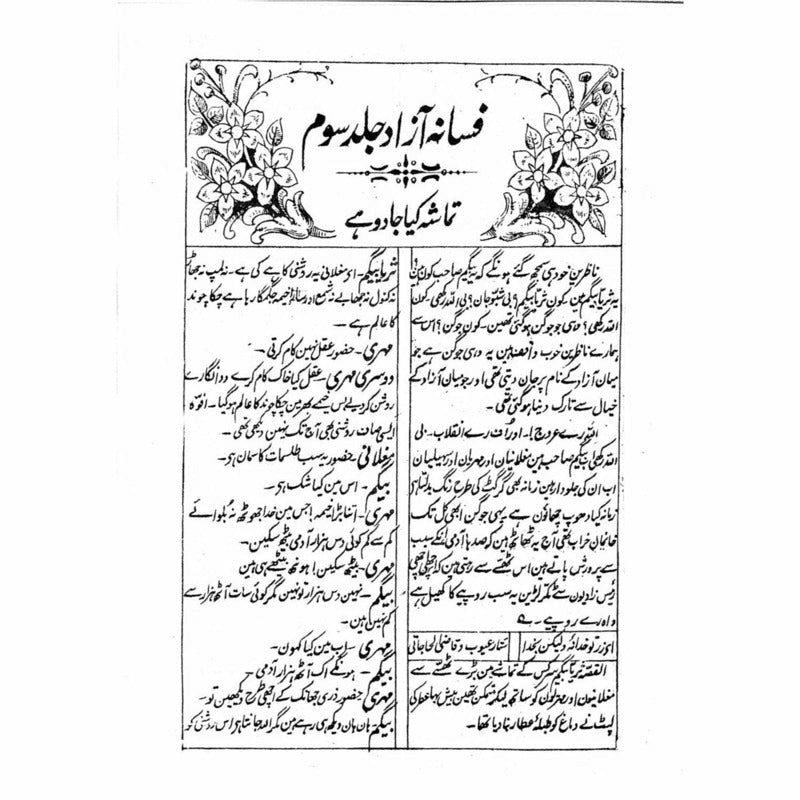 فسانہ آزاد جلد سوم
تماشہ کیا جادو ہے
ناظرین خود ہی سمجھ گئے ہونگے کہ یہ بیگم صاحب کون ہین؟
یہ ثریا بیگم ہین۔ کون ثریا بیگم؟ بی شبو جان؟ بی اللہ رکھی۔ کون
اللہ رکھی؟ وہی جو جوگن ہوگئی تھین۔ کون جوگن؟ اس سے
ہمارے ناظرین خوب واقف ہین یہ وہی جوگن ہے جو
میان آزاد کے نام پر جان دیتی تھی اور جو میان آزاد کے
خیال سے تارک دنیا ہوگئی تھی۔
اللہ رے عروج! ۔ اور اُف رے انقلاب۔ بی
اللہ رکھی اب بیگم صاحب ہین مغلانیان اور مہریان اور سہیلیان
اب ان کی جلو دار ہین زمانہ بھی گرگٹ کی طرح رنگ بدلتا ہی
زمانہ کیا دھوپ چھاؤن ہے یہی جوگن ابھی کل تک
خانمان خراب تھی آج یہ ٹھاٹھ ہین کہ صدہا آدمی انکے سبب
سے پرورش پاتے ہین اس ٹھسے سے رہتی ہین کہ اچھی اچھی
رئیس زادیون سے ٹکر لڑین یہ سب روپیے کا کھیل ہے
واہ رے روپیے۔ ؎
اے زر تو خدا نۂ ولیکن بخدا
ستار عیوب و قاضی الحاجاتی
القصہ ثریا بیگم سرکس کے تماشے مین بڑے ٹھسے سے
مغلانیون اور مہریون کو ساتھ لیکر متمکن تھین بیش بہا عطر کی
لپٹ نے دماغ کو طبلۂ عطار بنا دیا تھا۔
ثریا بیگم۔ اے مغلانی یہ روشنی کاہے کی ہے۔ نہ لمپ نہ جھاڑ
نہ کنول نہ جھابے نہ شمع اور سارا خیمہ جگمگا رہا ہے چکا چوند
کا عالم ہے۔
مہری۔ حضور عقل نہین کام کرتی۔
دوسری مہری۔ عقل کیا خاک کام کرے دو انگارے
روشن کر دیے بس خیمے بھر مین چکا چوند کا عالم ہوگیا۔ افوہ
ایسی صاف روشنی بھی آج تک نہین دیکھی تھی۔
مغلانی حضور یہ سب طلسمات کا سمان ہی۔
بیگم۔ اس مین کیا شک ہی۔
مہری۔ اتنا بڑا خیمہ! جس مین خدا جھوٹھ نہ بُلوائے
کم سے کم کوئی دس ہزار آدمی بیٹھ سکین۔
مہری۔ بیٹھ سکین! ہونھ بیٹھے ہی ہین
بیگم۔ نہین دس ہزار تو نہین مگر کوئی سات آٹھ ہزار سے
کم نہین ہین۔
مہری۔ اب مین کیا کہون۔
بیگم۔ ہونگے اک آٹھ ہزار آدمی۔
مہری حضور ذری جھانک کے اچھی طرح دیکھین تو۔
بیگم ہان ہان دیکھ ہی رہے ہین مگر اللہ جانتا ہی اس روشنی کو